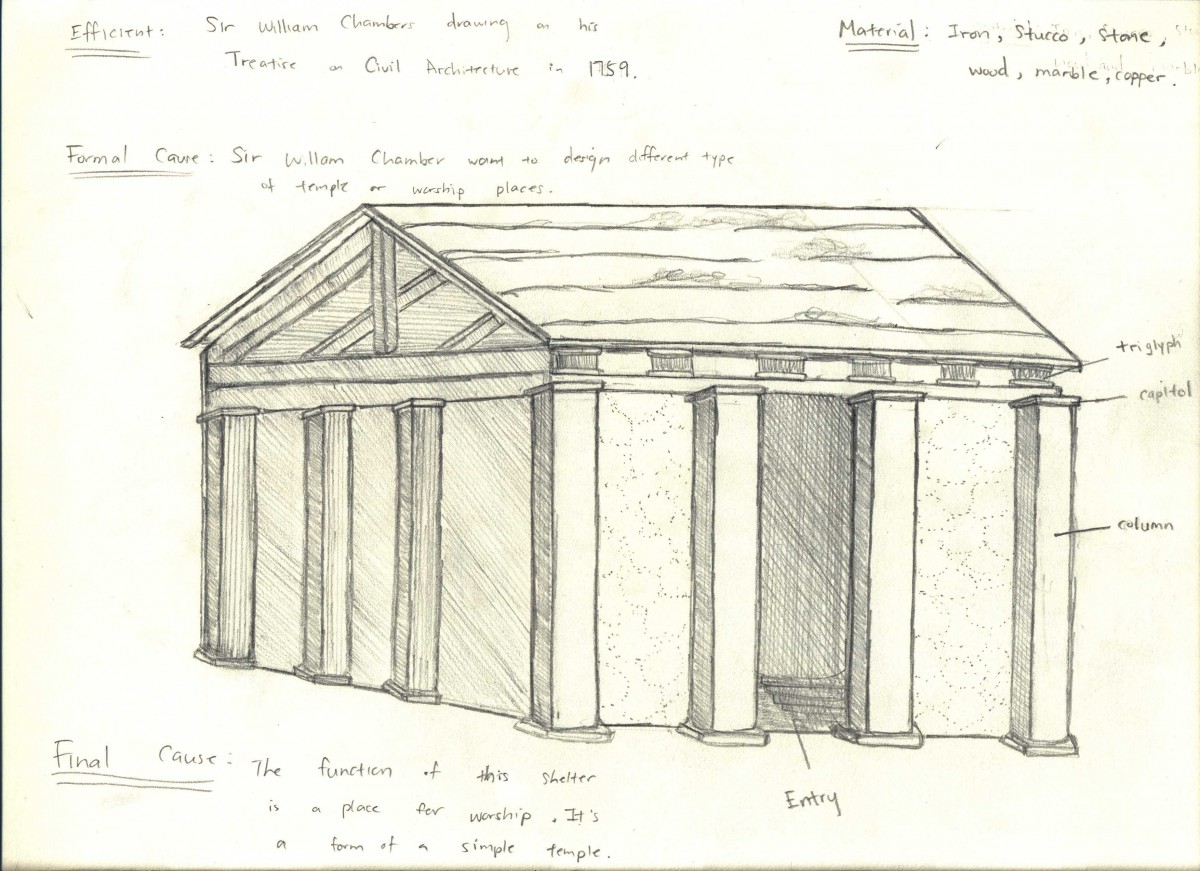 Efficient: Sir William Chambers drawing on his
Treatise on Civil Architecture in 1759.
Material: Iron, Stucco, Stone,
wood, marble, copper.
Formal Cause: Sir Willam Chamber want to design different type
of temple or worship places.
triglyph
capitol
column
Entry
Final Cause: The function of this shelter
is a place for worship. It's
a form of a simple temple.